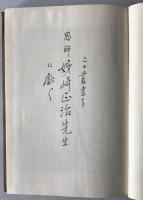 この叢書を
恩師 姉崎正治先生
に献く